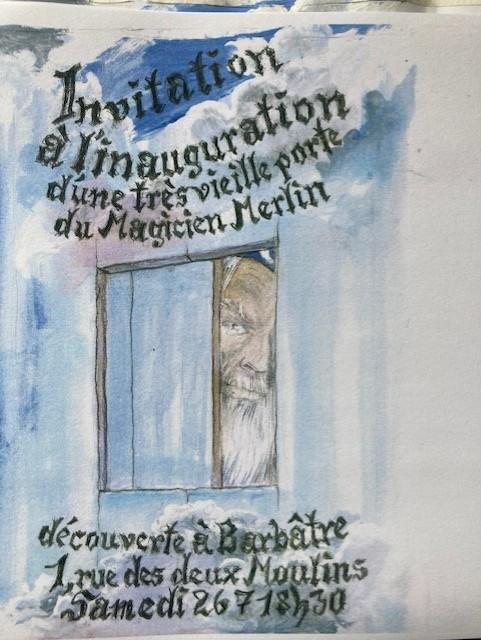 Invitation
à l'inauguration
d'une très vieille porte
du Magicien Merlin
découverte à Barbâtre
1, rue des deux Moulins
Samedi 26 7 18h30